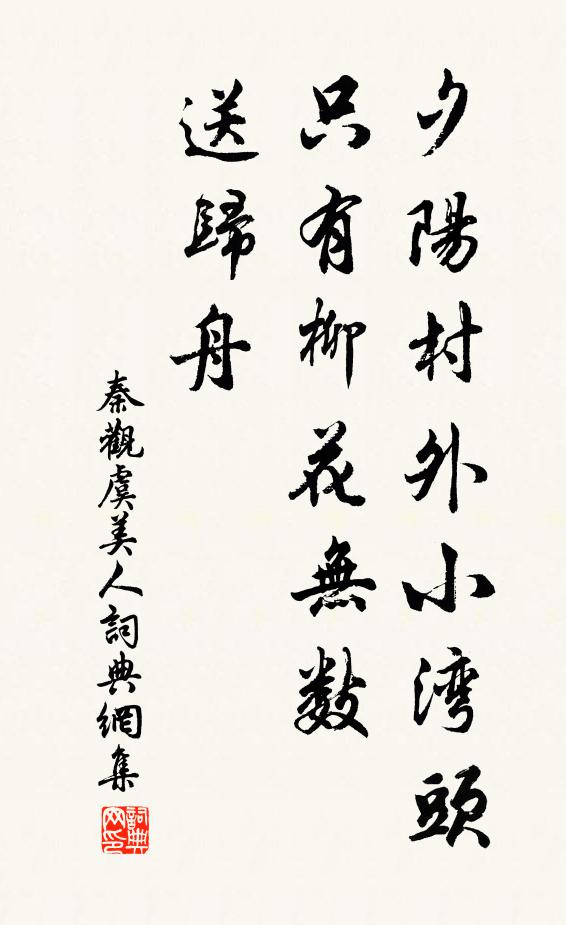 夕陽村外小湾頭
只有柳花無数
送歸舟
秦觀虞美人詞典網集
詞典网印